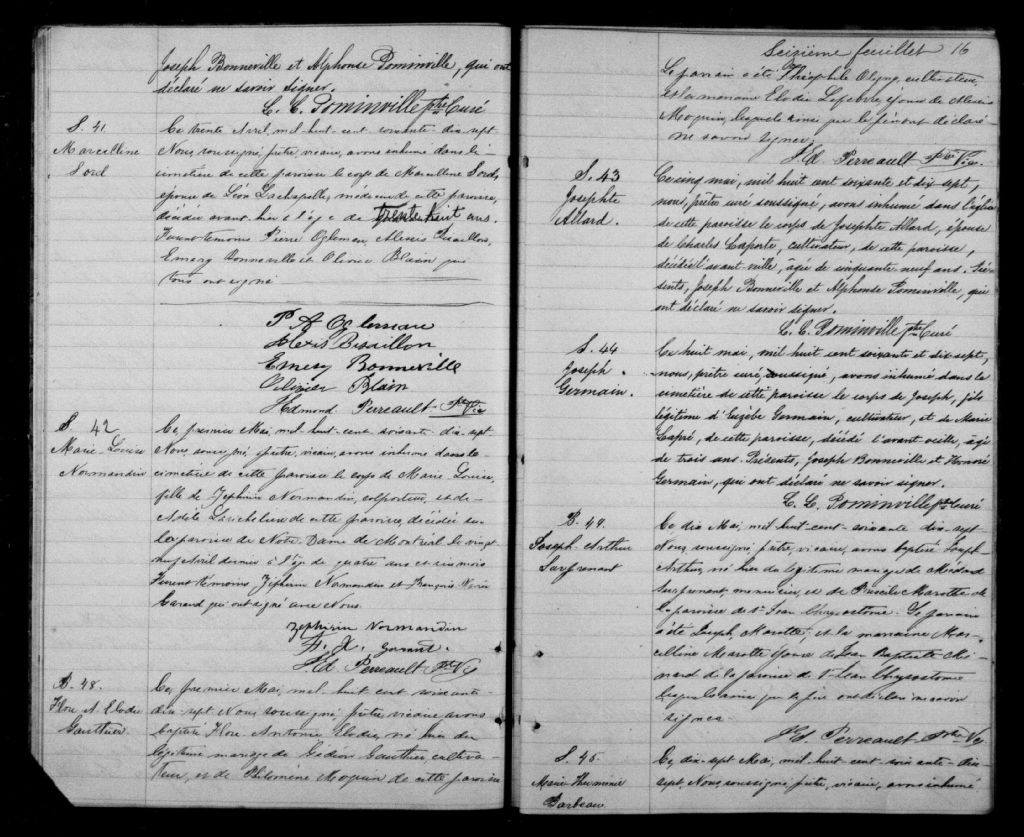 Joseph Bonneville et Alphonse Pominville, qui ont
déclaré ne savoir signer.
C. C. Pominville ptre Curé
S. 41
Marcelline
Sord
Ce trente Avril, mil-huit-cent soixante-dix-sept
Nous, soussigné, prêtre, vicaire, avons inhumé dans le ci-
-metière de cette paroisse le corps de Marcelline Sord,
épouse de Léon Lachapelle, médecin de cette paroisse,
décédée avant-hier à l'âge de trente huit ans.
Furent témoins Pierre Ogleman, Alexis Bissaillon,
Emery Bonneville et Olivier Blain qui
tous ont signé
P A Ogleman
Alexis Bissillon
Emery Bonneville
Olivier Blain
HEdmond Perreault Ptre Vic
S 42
Marie-Louise
Normandin
Ce, premier Mai, mil-huit-cent soixante-dix-sept
Nous, soussigné, prêtre, vicaire, avons inhumé dans le
cimetière de cette paroisse le corps de Marie-Louise,
fille de Zéphirin Normandin, colporteur, et de
Adèle de cette paroisse, décédée sur
la paroisse de Notre-Dame de Montréal le vingt
neuf Avril dernier à l'âge de quatre ans et six mois
Furent témoins Zéphirin Normandin et François Xavier
Garand qui ont signé avec Nous.
Zephirin Normandin
F. X. Garant.
HEd Perreault Ptre Vic
B. 48.
A Elodie
Gauthier
Ce, premier Mai, mil huit cent soixante-
-dix-sept, Nous soussigné prêtre, vicaire avons
baptisé Antonie Elodie, née hier du
légitime mariage de Gédéon Gauthier cultiva-
teur, et de Philomène Moquin de cette paroisse
Seizième feuillet 16
Le parrain a été Théophile Oligny, cultivateur,
et la marraine Elodie Lefebvre, épouse de Alexis
Moquin, laquelle ainsi que le père ont déclaré
ne savoir signer.
HEd Perreault Ptre Vic.
S. 43
Josephte
Allard.
Ce cinq mai, mil huit cent soixante et dix sept,
nous, prêtre curé soussigné, avons inhumé dans l'église
de cette paroisse le corps de Josephte Allard, épouse
de Charles Laporte, cultivateur, de cette paroisse,
décédée l'avant veille, âgée de cinquante neuf ans. Pré-
sents, Joseph Bonneville et Alphonse Pominville, qui
ont déclaré ne savoir signer.
C. C. Pominville ptre Curé
S. 44
Joseph
Germain.
Ce huit mai, mil huit cent soixante et dix sept,
nous, prêtre curé, soussigné, avons inhumé dans le
cimetière de cette paroisse le corps de Joseph, fils
légitime d'Euzèbe Germain, cultivateur, et de Marie
Dupré, de cette paroisse, décédé l'avant veille, âgé
de trois ans. Présents, Joseph Bonneville et Honoré
Germain, qui ont déclaré ne savoir signer.
C. C. Pominville ptre Curé
B. 49.
Joseph Arthur
Surprenant
Ce dix Mai, mil-huit-cent-soixante dix-sept
Nous, soussigné, prêtre, vicaire, avons baptisé Joseph
Arthur, né hier du légitime mariage de Médard
Surprenant menuisier, et de Priscile Marotte de
la paroisse de St Jean Chrysostome. Le parrain
a été Joseph Marotte, et la marraine Mar-
celline Marotte épouse de Jean Baptiste
de la paroisse de St Jean Chrysostome
laquelle ainsi que le père ont déclaré ne savoir
signer.
HEd. Perreault Ptre Vic.
S. 45.
Marie
Barbeau
Ce, dix-sept Mai, mil-huit-cent-soixante-dix-
sept, Nous soussigné, prêtre, vicaire, avons inhumé